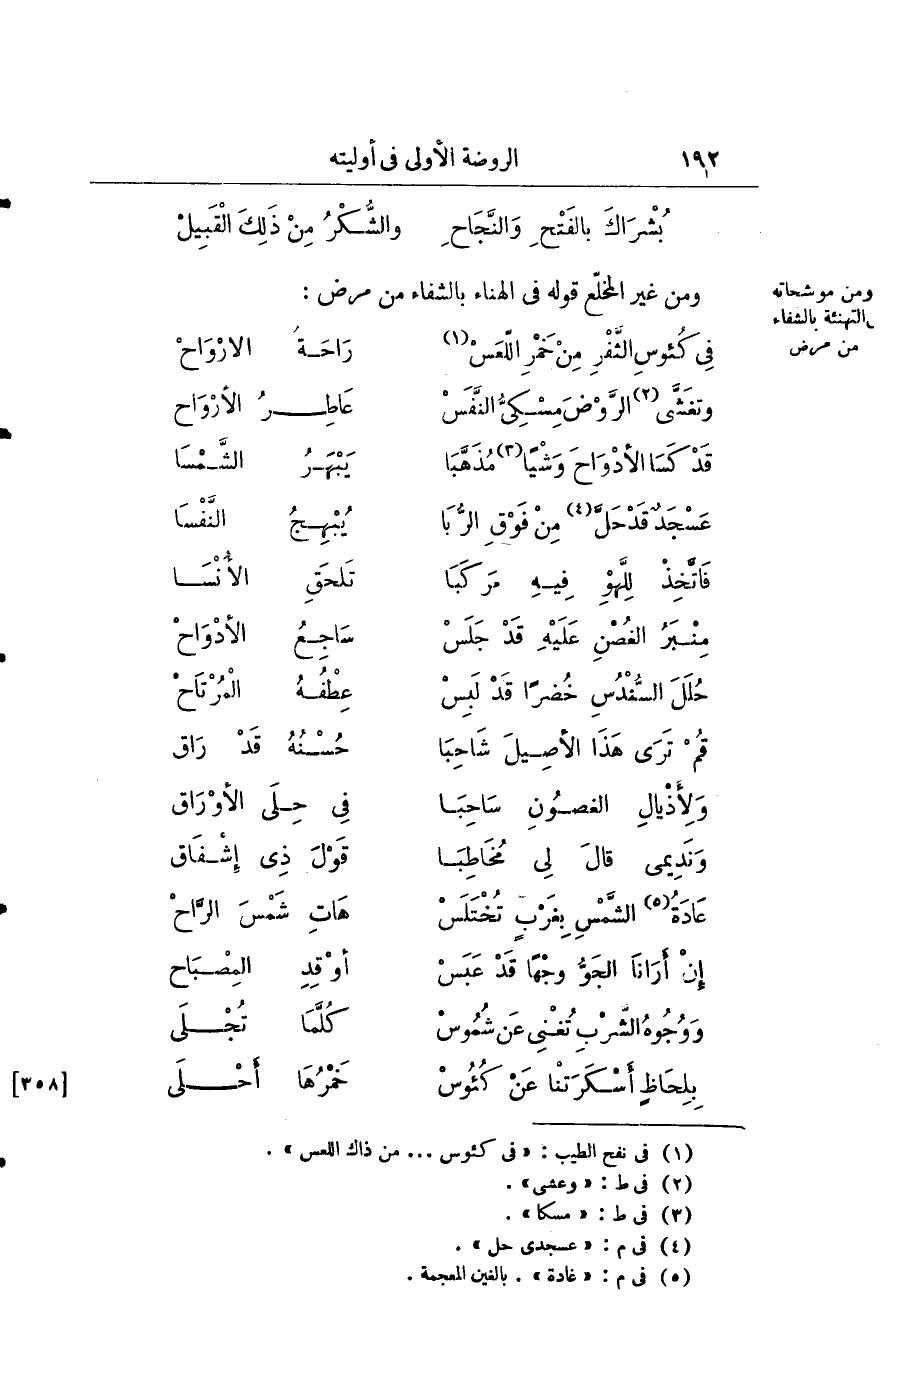 ١٩٢ الروضة الأولى فى أوليته
بُشْرَاكَ بالفَتْحِ وَالنَّجَاحِ والشُّكْرُ مِنْ ذَلِكَ الْقَبِيلْ
ومن غير المخلّع قوله فى الهناء بالشفاء من مرض :
ومن موشحاته
التهنئة بالشفاء
من مرض
فِى كُئوسِ الثَّغْرِ مِنْ خَمْرِ اللّعَسْ(١) رَاحَـةُ الارْوَاحْ
وتغَشَّى(٢) الرَّوْضَ مِسْـكِىُّ النَّفَسْ عَاطِـــرُ الأَرْوَاح
قَدْ كَسَا الأدْوَاحَ وَشْيًا(٣) مُذَهَّبَا يَبْهَـرُ الشَّـمْسَا
عَسْجَدٌ قَدْ حَلَّ(٤) مِنْ فَوْقِ الرُّبَا يُبْهِـجُ النَّفْسَا
فَاتَّخِذْ لِلَّهْوِ فِيـهِ مَرْكَبَا تَلحَقِ الأُنْسَــا
مِنْـبَرُ الغُصْنِ عَلَيْهِ قَدْ جَلَسْ سَاجِـعُ الأدْوَاحْ
حُلَلَ السُّنْدُسِ خُضرًا قَدْ لَبِسْ عِطْفُـهُ الْمُرْتَاحْ
قُمْ تَرَى هَذَا الأصِيـلَ شَاحِبَا حُسْـنُهُ قَدْ رَاق
وَلِأَذْيالِ الغصُـونِ سَاحِبَـا فِى حِـلَى الأوْرَاق
وَنَدِيمى قالَ لِى مُخَاطِبَـا قَوْلَ ذِى إشْـفَاق
عَادَةُ(٥) الشَّمْسِ بِغَرْبٍ تُخْتَلَسْ هَاتِ شَمْسَ الرَّاحْ
إِنْ أَرَانَا الجَوُّ وجْهًا قَدْ عَبَسْ أوْقِدِ المِصْـبَاح
وَوُجُوهُ الشَّرْبِ تُغْنِى عَن شُمُوسْ كُلَّمَا تُجْــلَى
بِلِحَاظٍ أَسْـكَرَتْنا عَنْ كُئُوسْ خَمْرُهَا أَحْــلَى
[٣٥٨]
(١) فى نفح الطيب : « فى كئوس ... من ذاك اللعس » .
(٢) فى ط : « وعفى » .
(٣) فى ط : « مسكا » .
(٤) فى م : « عسجدى حل » .
(٥) فى م : « غادة » . بالغين المعجمة .